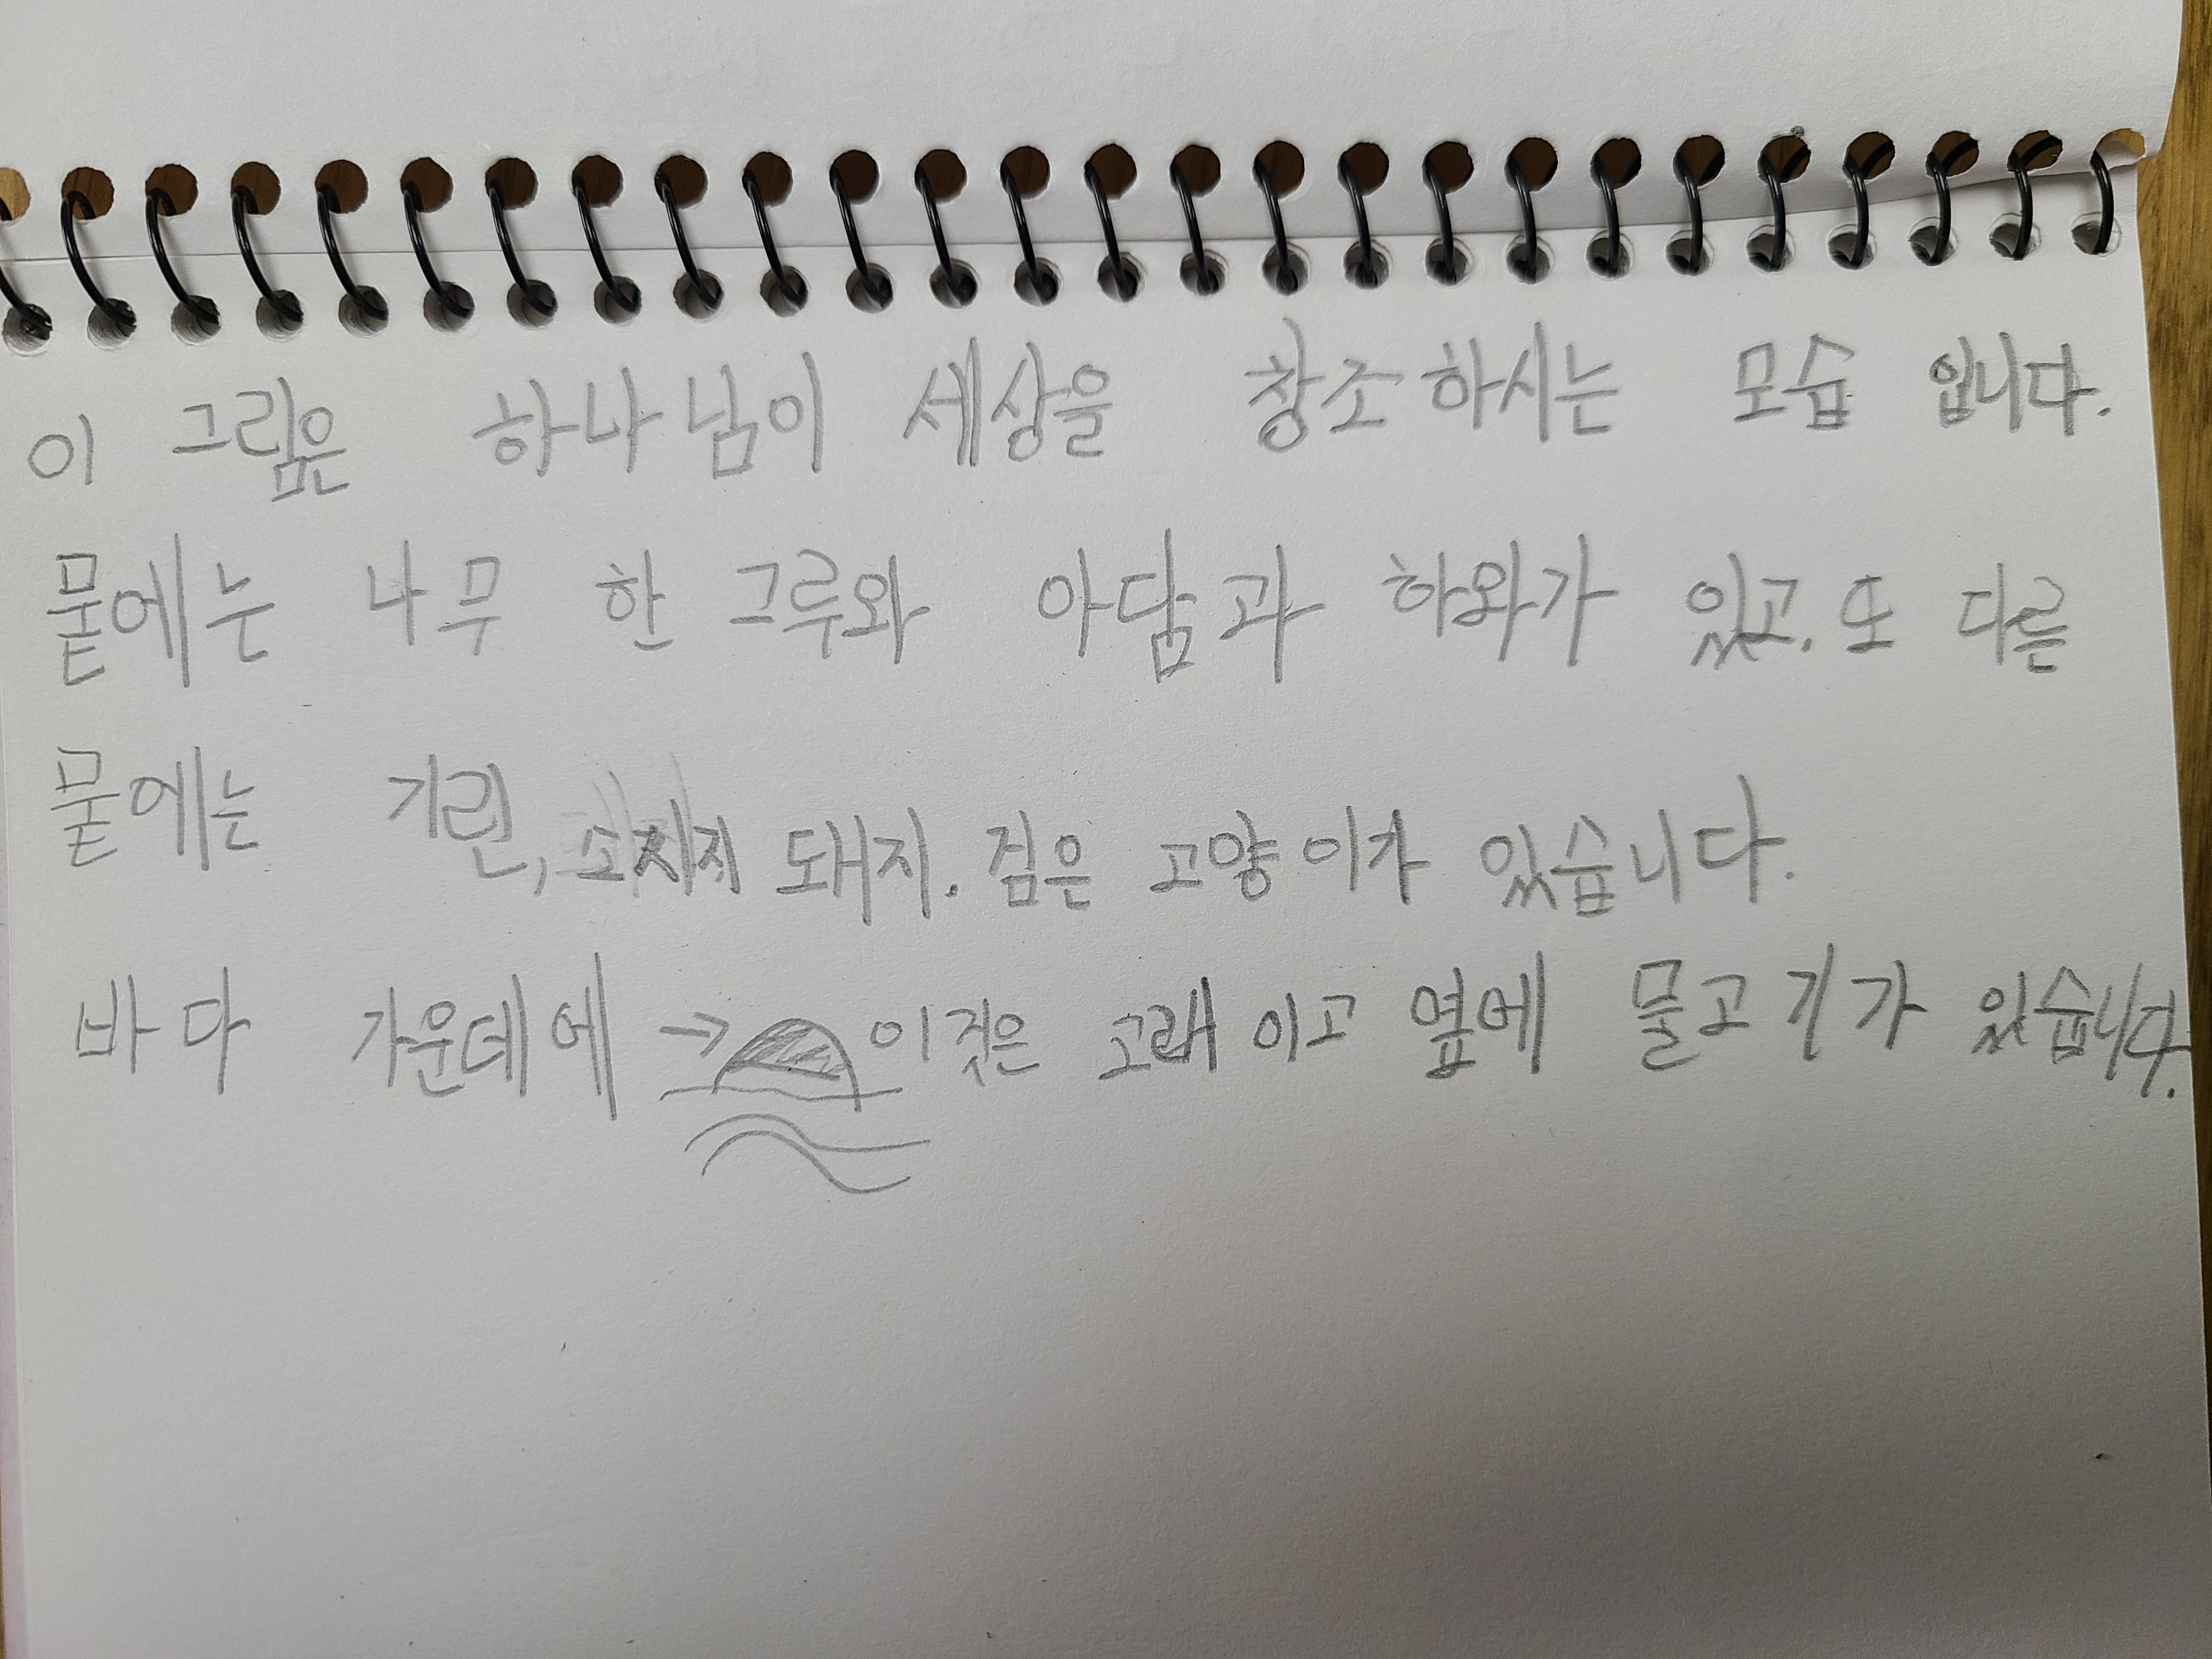 이 그림은 하나님이 세상을 창조하시는 모습 입니다.
뭍에는 나무 한 그루와 아담과 하와가 있고. 또 다른
뭍에는 기린, 돼지. 검은 고양이가 있습니다.
바다 가운데에 → 이것은 고래이고 옆에 물고기가 있습니다.